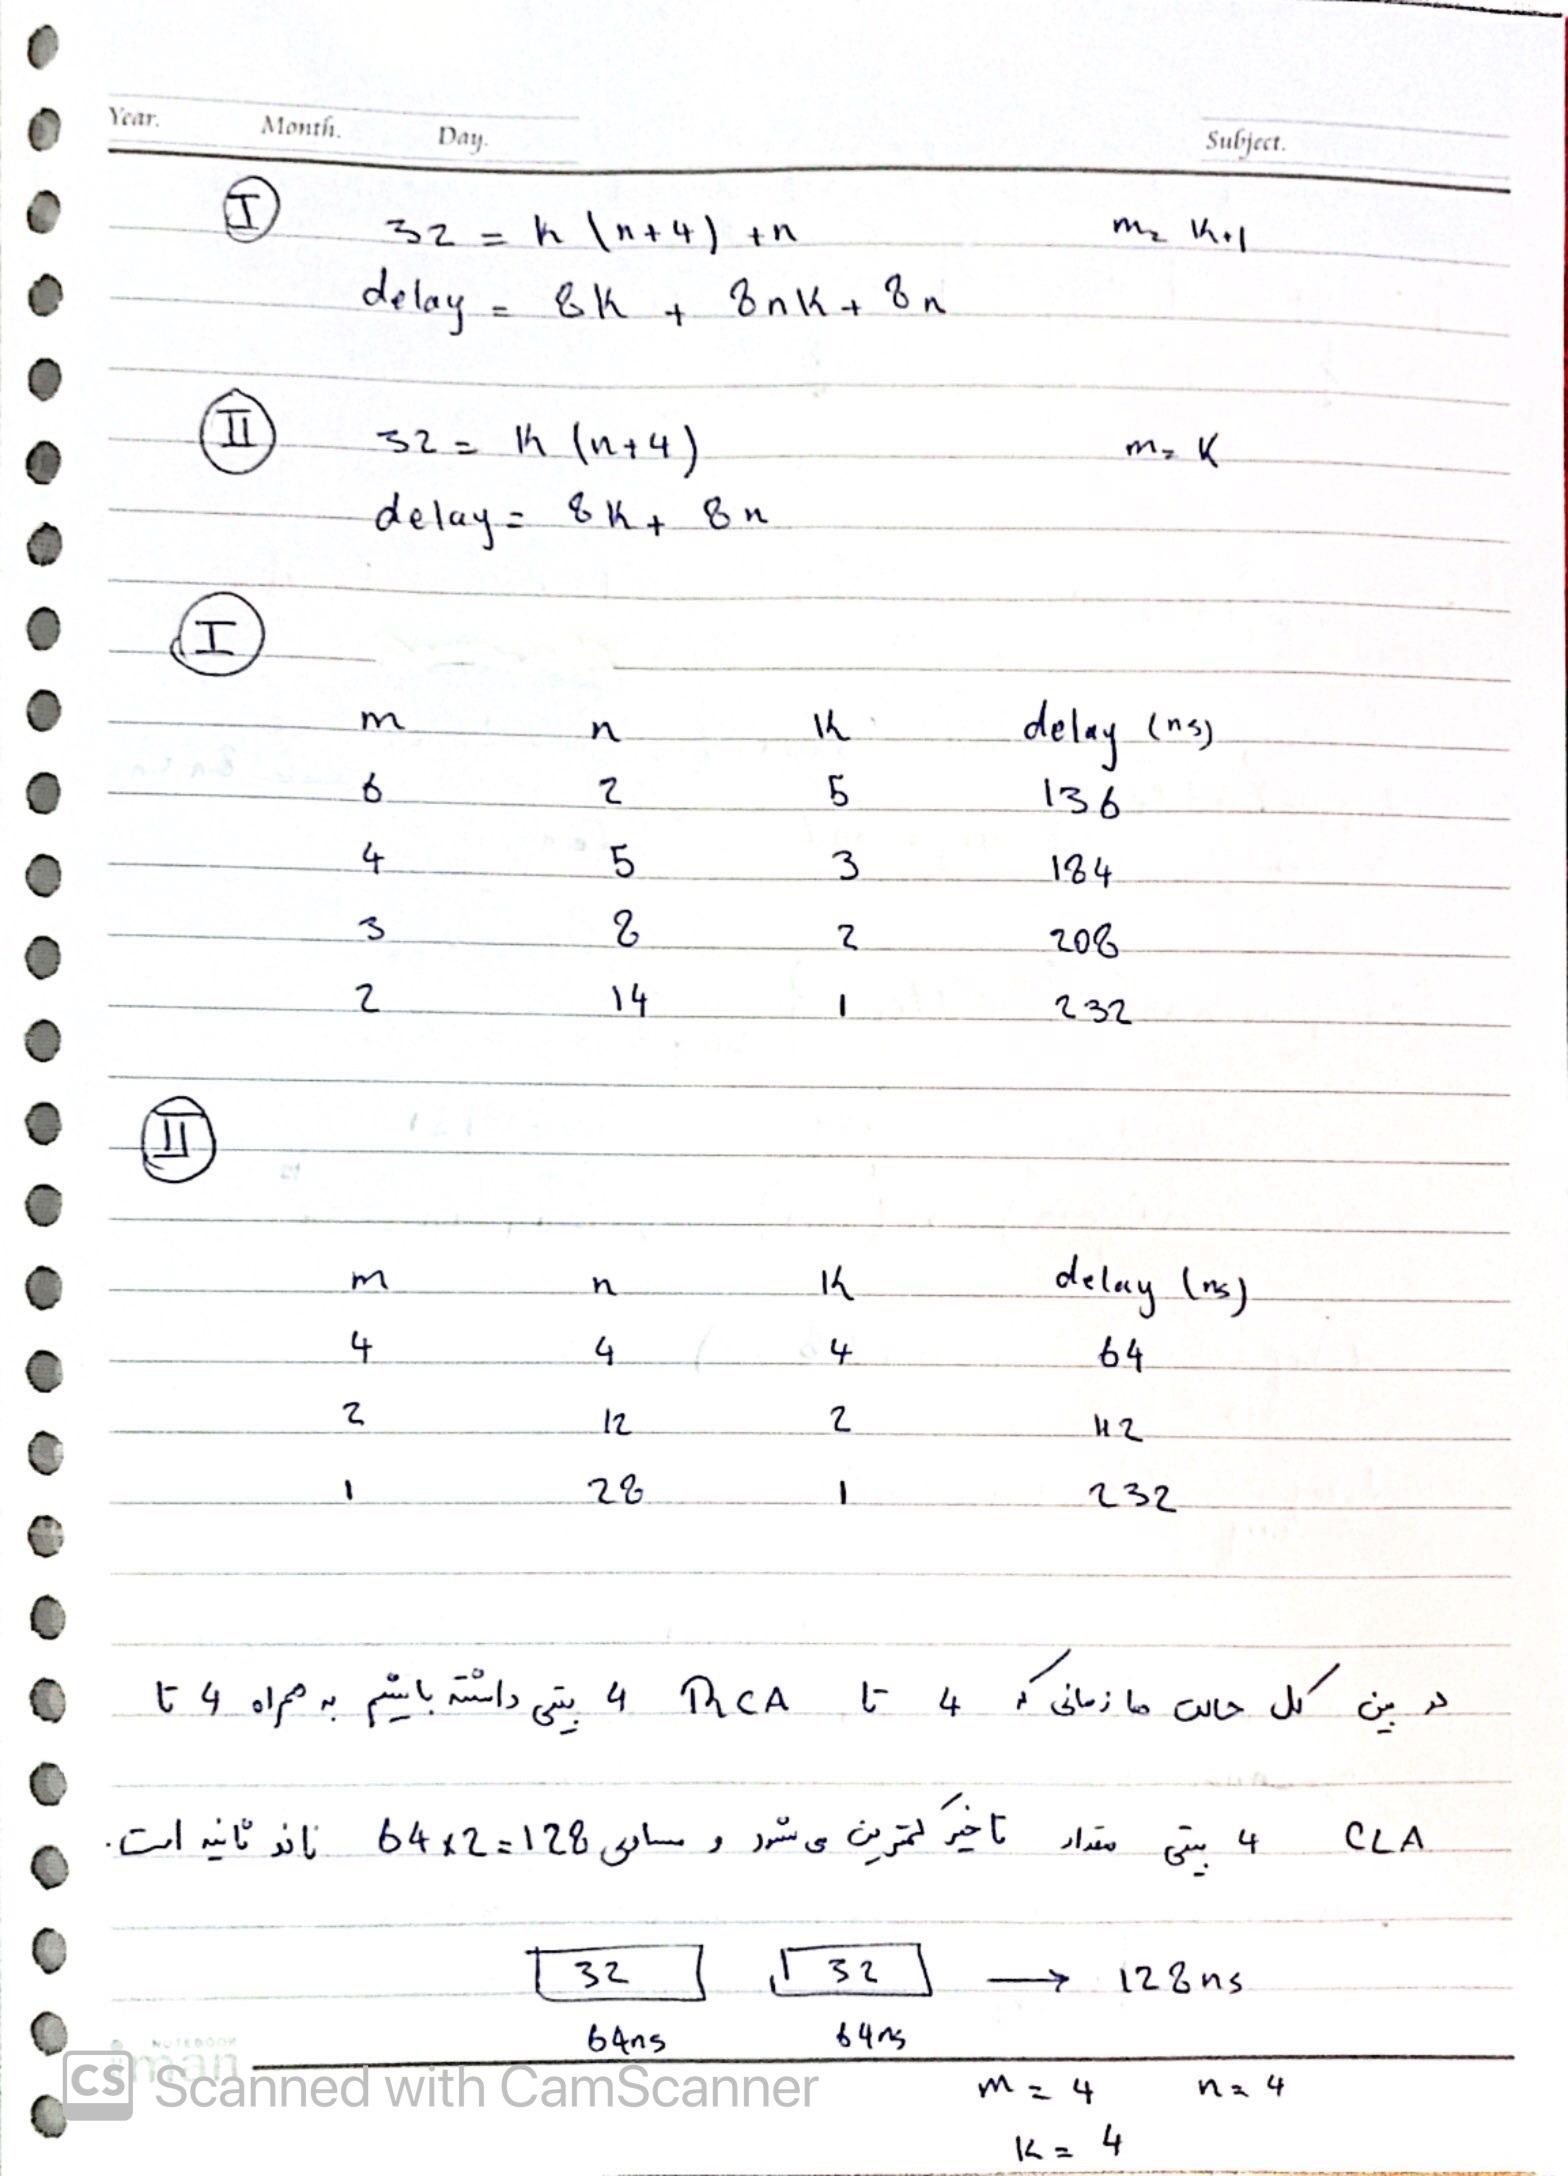 Year. Month. Day. Subject.
I 32 = K (n+4) + n m = K+1
delay = 8K + 8nK + 8n
II 32 = K (n+4) m = K
delay = 8K + 8n
I
m n K delay (ns)
6 2 5 136
4 5 3 184
3 8 2 208
2 14 1 232
II
m n K delay (ns)
4 4 4 64
2 12 2 112
1 28 1 232
در بین کل حالت ها زمانی که 4 تا RCA 4 بیتی داشته باشیم به همراه 4 تا
CLA 4 بیتی مقدار تاخیر کمترین می شود و مساوی 64×2=128 نانو ثانیه است.
32 32 → 128ns
64ns 64ns
NOTEBOOK
iman
CS Scanned with CamScanner
m = 4 n = 4
K = 4